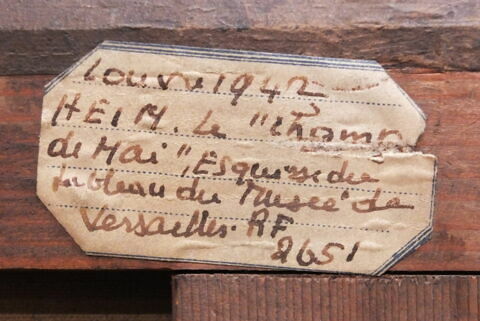 Louvre 1942
HEIM. Le "Champ
de Mai", Esquisse du
tableau du Musée de
Versailles. RF
2651